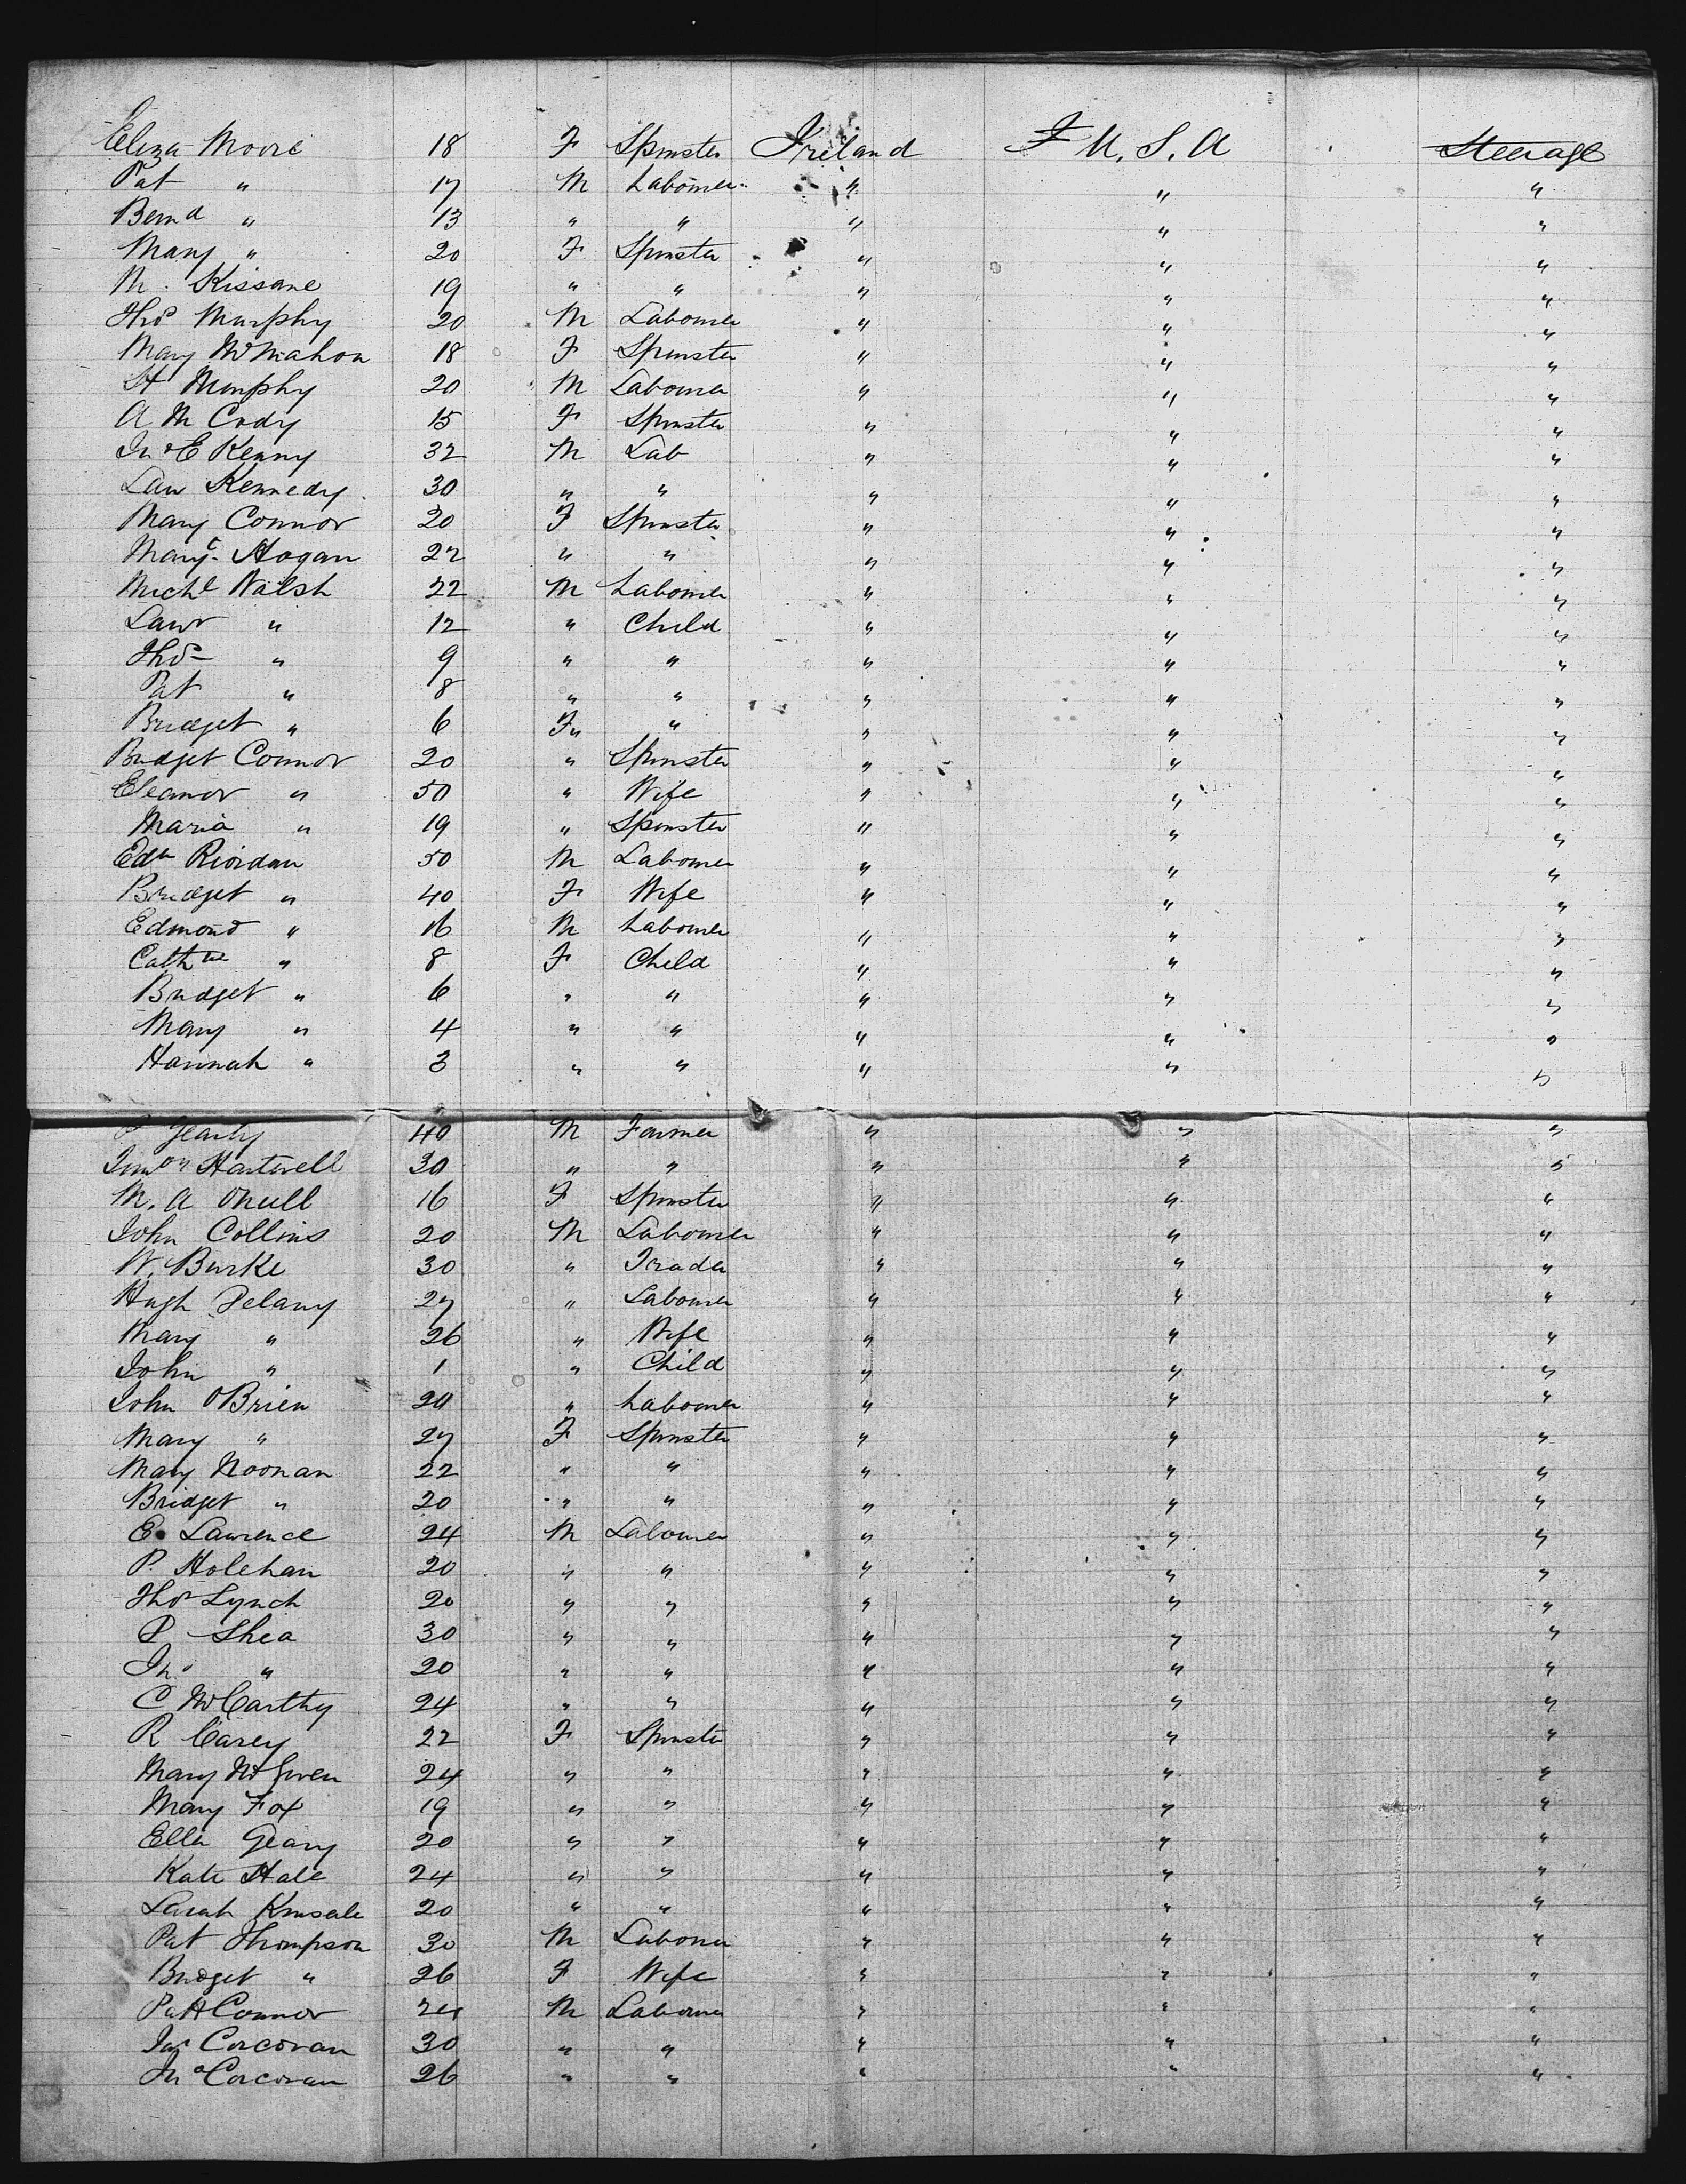 Eliza Moore 18 F Spinster Ireland U. S. A Steerage
Pat " 17 M Labourer " " "
Bernd " 13 " " " " "
Mary " 20 F Spinster " " "
M. Kissane 19 " " " " "
Thos Murphy 20 M Labourer " " "
Mary McMahon 18 F Spinster " " "
Murphy 20 M Labourer " " "
A M Cody 15 F Spinster " " "
Jno E Kenny 32 M Lab " " "
Law Kennedy 30 " " " " "
Mary Connor 20 F Spinster " " "
Margt Hogan 22 " " " " "
Michl Walsh 22 M Labourer " " "
Lawr " 12 " Child " " "
Thos " 9 " " " " "
Pat " 8 " " " " "
Bridget " 6 F " " " "
Bridget Connor 20 " Spinster " " "
Eleanor " 50 " Wife " " "
Maria " 19 " Spinster " " "
Edd Riordan 50 M Labourer " " "
Bridget " 40 F Wife " " "
Edmond " 16 M Labourer " " "
Cathne " 8 F Child " " "
Bridget " 6 " " " " "
Mary " 4 " " " " "
Hannah " 3 " " " " "
Gearty 40 M Farmer " " "
Hartwell 30 " " " " "
M. A ONeill 16 F Spinster " " "
John Collins 20 M Labourer " " "
W. Burke 30 " Trader " " "
Hugh Delany 27 " Labourer " " "
Mary " 26 " Wife " " "
John " 1 " Child " " "
John OBrien 20 " Labourer " " "
Mary " 27 F Spinster " " "
Mary Noonan 22 " " " " "
Bridget " 20 " " " " "
E. Lawrence 24 M Labourer " " "
P. Holehan 20 " " " " "
Thos Lynch 20 " " " " "
P Shea 30 " " " " "
Jno " 20 " " " " "
C McCarthy 24 " " " " "
R Carey 22 F Spinster " " "
Mary 24 " " " " "
Mary Fox 19 " " " " "
Ellen Geary 20 " " " " "
Kate Hale 24 " " " " "
Sarah Kinsale 20 " " " " "
Pat Thompson 30 M Labourer " " "
Bridget " 26 F Wife " " "
Patt Connor 24 M Labourer " " "
Jas Corcoran 30 " " " " "
Jno Corcoran 26 " " " " "